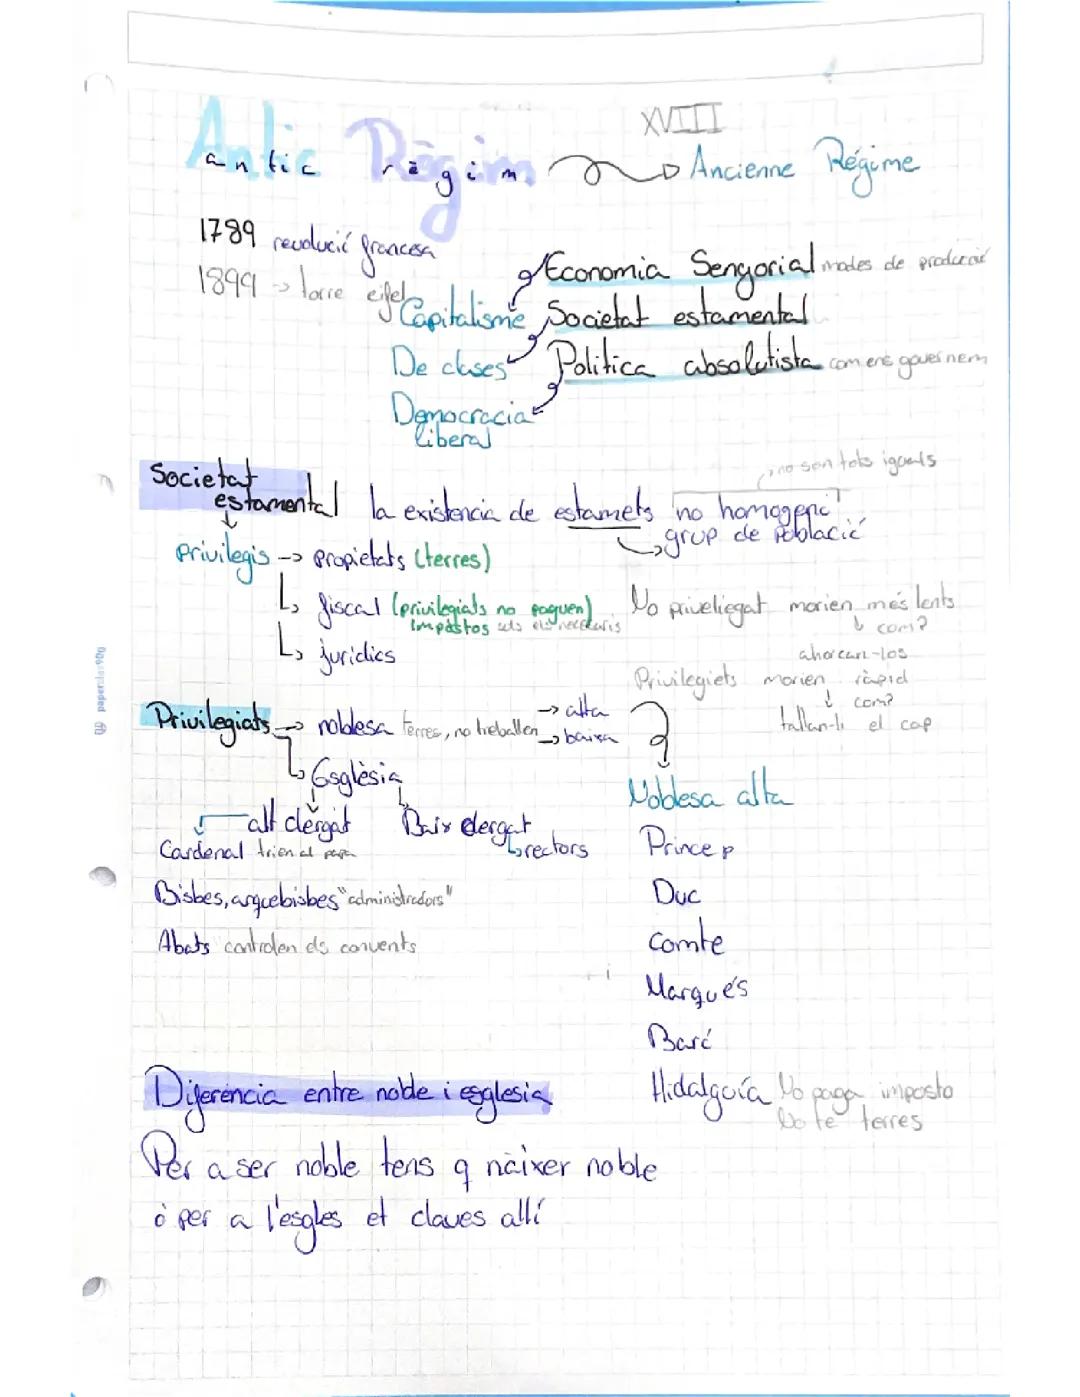 XVIII
Antic Règim
antic règim → Ancienne Régime
1789 revolució francesa
1899 → torre eifel
Economia Senyorial modes de producció
Capitalisme Societat estamental
De clases Politica absolutista com ens governem
Democracia
liberal
no son tots iguals
Societat
estamental la existencia de estamets no homogeni
grup de Població
Privilegis → propietats (terres)
fiscal (privilegiats no paguen)
impostos sols els necesaris
jurídics
No priveliegat morien més lents
com?
ahorcan-los
Privilegiets morien ràpid
com?
tallan-li el cap
Privilegiats → noblesa terres, no treballen → alta
→ baixa
Església
alt clergat Baix clergat
rectors
Cardenal trien al papa
Bisbes, arquebisbes "administradors"
Abats controlen els convents
Noblesa alta
Princep
Duc
Comte
Marqués
Baró
Hidalguía No paga imposto
No te terres
Diferencia entre noble i esglesia
Per a ser noble tens q nàixer noble
o per a l'esgles et claves allí
paperdar 90g